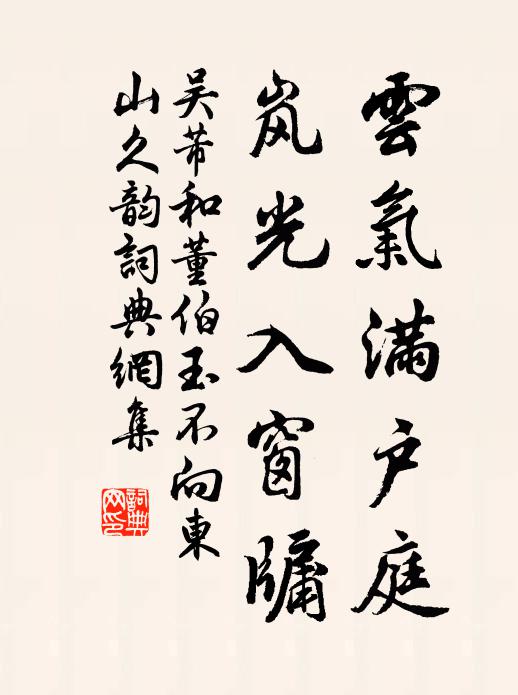 雲氣滿戶庭
岚光入窗牖
吴芾和董伯玉不向東
山久韵詞典網集
詞典
网印